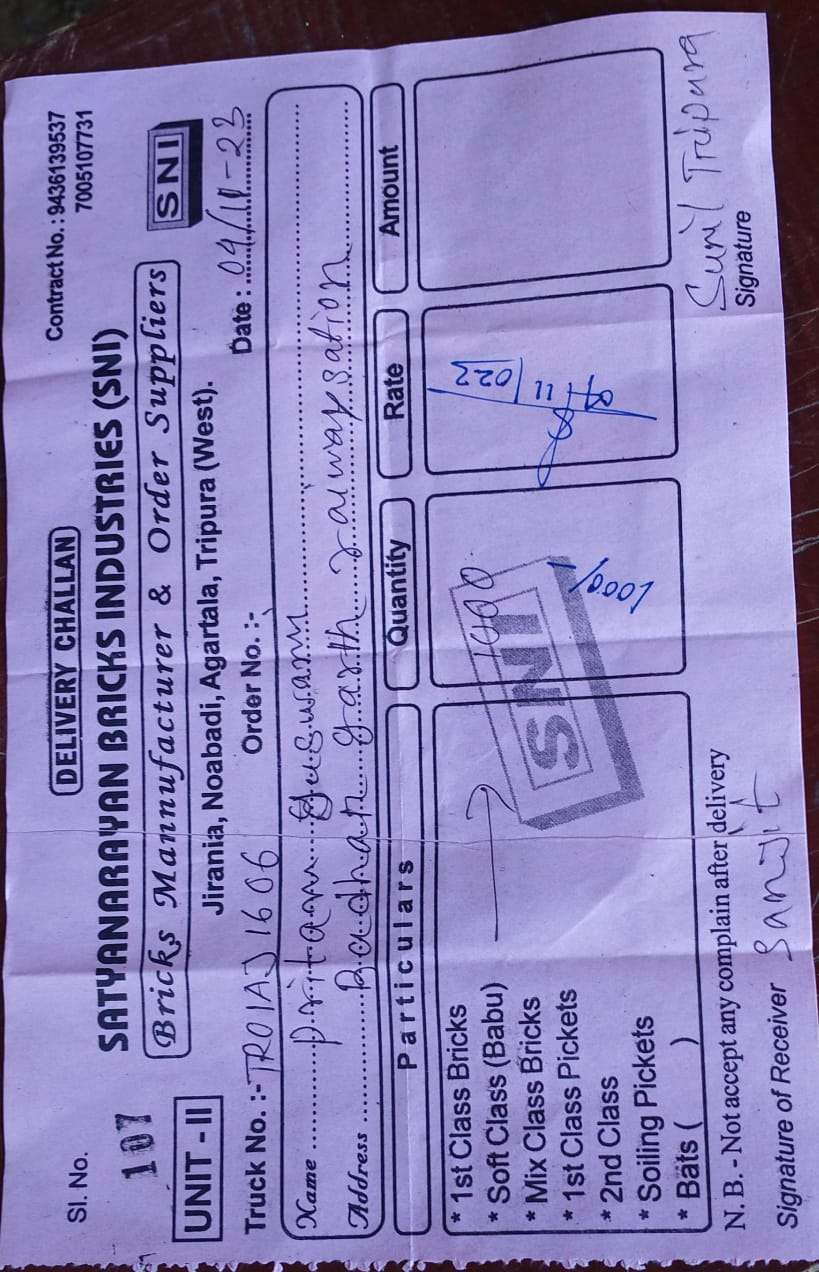 DELIVERY CHALLAN
Contract No. : 9436139537
7005107731
Sl. No.
107
SATYANARAYAN BRICKS INDUSTRIES (SNI)
Bricks Mannufacturer & Order Suppliers
SNI
UNIT - II
Jirania, Noabadi, Agartala, Tripura (West).
Truck No. :- TR01AJ1606 Order No. :- Date : 04/11-23
Name pritam
Address Badhar garth railway sation
Particulars Quantity Rate Amount
* 1st Class Bricks
* Soft Class (Babu) 1000
* Mix Class Bricks
* 1st Class Pickets
* 2nd Class
* Soiling Pickets
* Bats ( )
SNI
1000/-
N. B. - Not accept any complain after delivery
Signature of Receiver Sanjit
Sunil Tripura
Signature